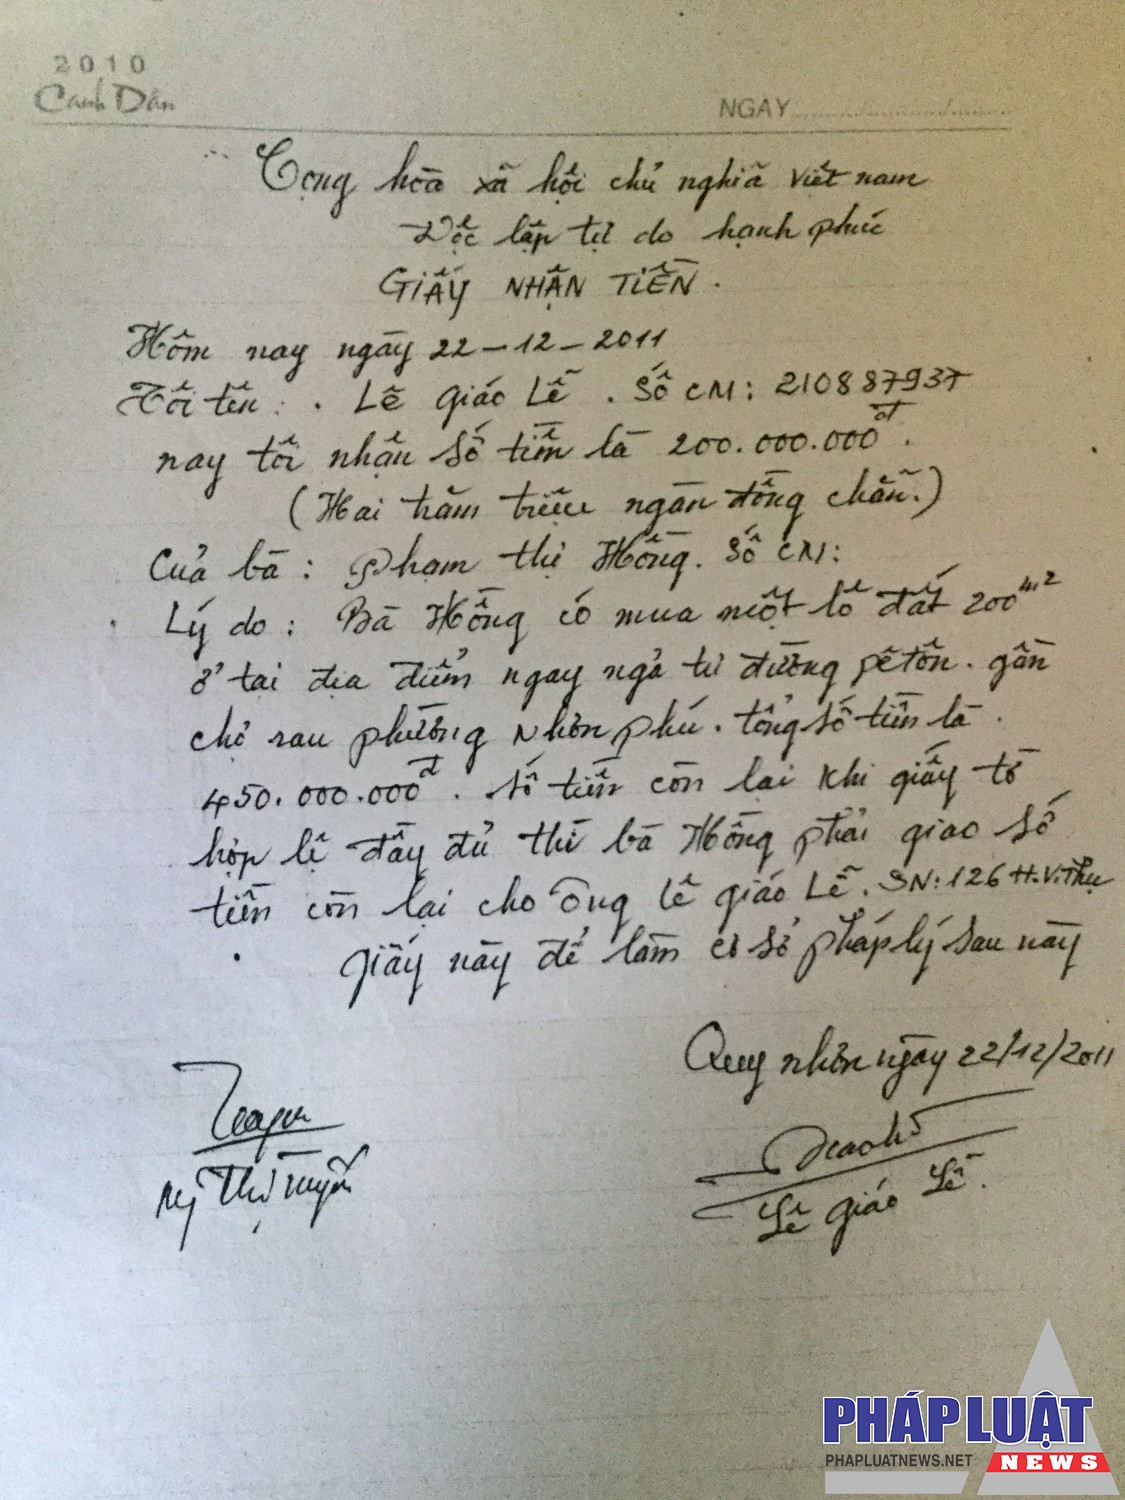 2010
Canh Dần
NGÀY
Cộng hòa xã hội chủ nghiã Việt nam
Độc lập tự do hạnh phúc
GIẤY NHẬN TIỀN.
Hôm nay ngày 22-12-2011
Tôi tên: . Lê giáo Lễ. Số CM: 210887937
nay tôi nhận số tiền là 200.000.000đ.
(Hai trăm triệu ngàn đồng chẵn.)
Của bà: Phạm thị Hồng. Số CM:
Lý do: Bà Hồng có mua một lô đất 200m2
ở tại địa điểm ngay ngả tư đường bê tôn. gần
chợ sau phường Nhơn phú. tổng số tiền là.
450.000.000đ. số tiền còn lại khi giấy tờ
hợp lệ đầy đủ thì bà Hồng phải giao số
tiền còn lại cho ông lê giáo Lễ. SN: 126 H.V.Thụ
giấy này để làm cơ sở pháp lý sau này
Quy nhơn ngày 22/12/2011
Lê giáo Lễ.
PHÁP LUẬT
PHAPLUATNEWS.NET
NEWS